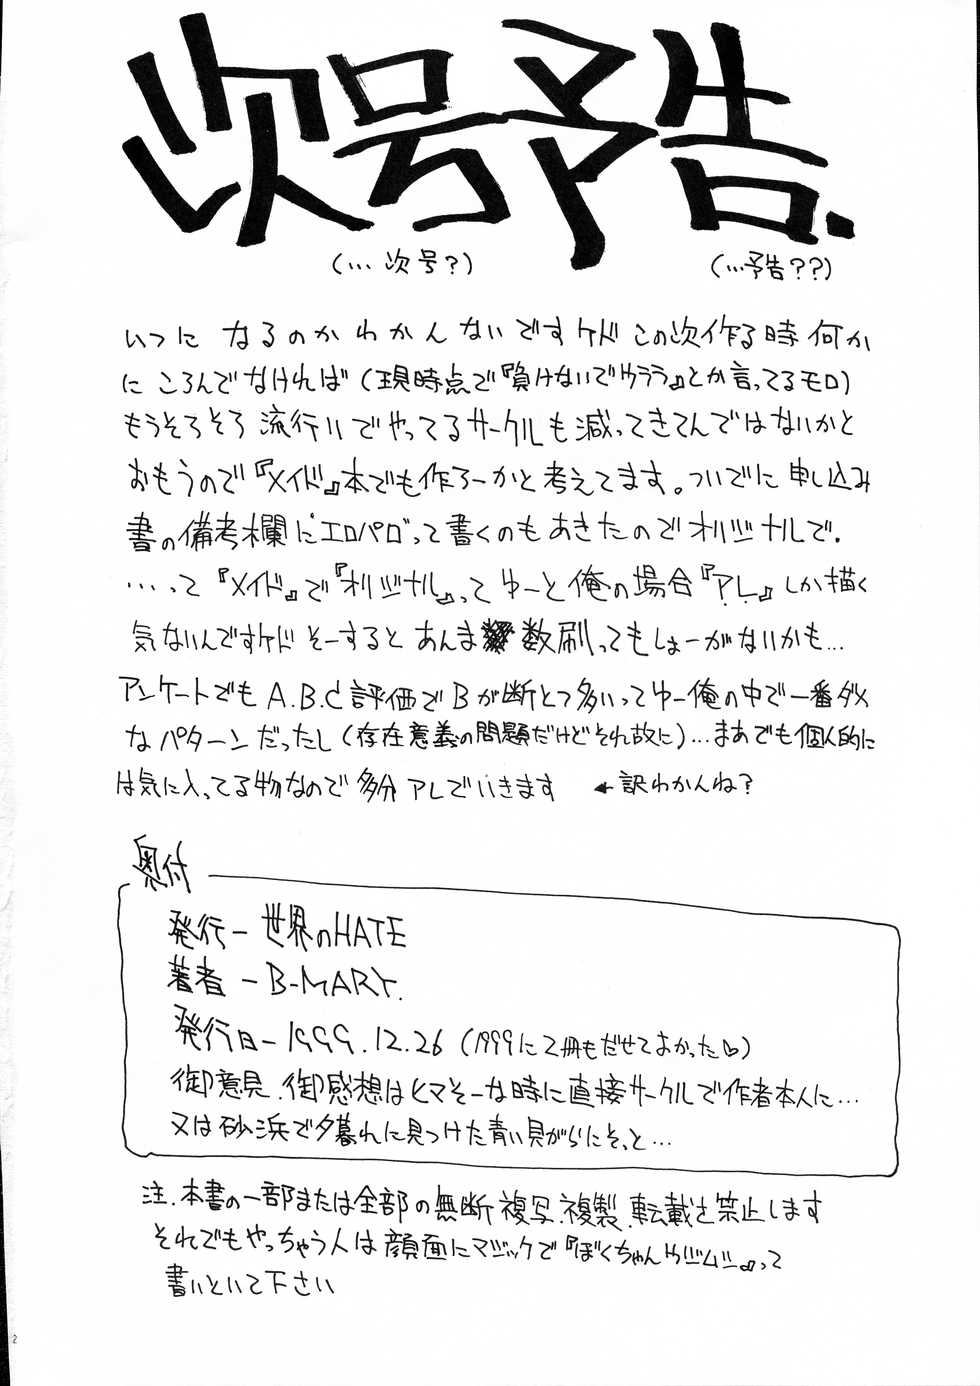 次号予告.
(…次号?) (…予告??)
いつに なるのかわかんないですケド この次作る時 何か
に ころんでなければ (現時点で『負けないでウララ』とか言ってるモロ)
もうそろそろ 流行りでやってるサークルも減ってきてんではないかと
おもうので『メイド』本でも作ろーかと考えてます。ついでに申し込み
書の備考欄に"エロパロ"って書くのもあきたのでオリジナルで.
…って『メイド』で『オリジナル』ってゆーと俺の場合『アレ』しか描く
気ないんですケド そーすると あんま 数刷ってもしょーがないかも…
アンケートでも A.B.C評価で Bが断とつ多いってゆー俺の中で一番ダメ
なパターンだったし (存在意義の問題だけどそれ故に)…まあでも個人的に
は気に入ってる物なので 多分 アレでいきます ←訳わかんね?
奥付
発行ー世界のHATE
著者 ーB-MARY.
発行日ー1999.12.26 (1999に2冊もだせてよかった♡)
御意見.御感想はヒマそーな時に直接サークルで作者本人に…
又は砂浜で夕暮れに見つけた青い貝がらにそっと…
注.本書の一部または全部の無断複写.複製.転載を禁止します
それでもやっちゃう人は顔面にマジックで『ぼくちゃん』って
書いといて下さい
2